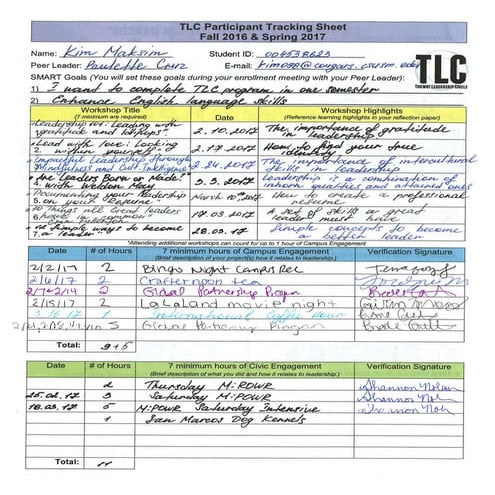 TLC Participant Tracking Sheet
Fall 2016 & Spring 2017
Name: Kim Maksim Student ID: 004538623
Peer Leader: Paulette Cruz E-mail: @cougars.csusm.edu
TLC
SMART Goals (You will set these goals during your enrollment meeting with your Peer Leader):
1) I want to complete TLC program in one semester
2) Enhance English language skills
Workshop Title Date Workshop Highlights
(7 minimum are required) (Reference learning highlights in your reflection paper)
Leadership for: Leading with
1. "gratitude and lollipops" 2.10.2017 The importance of gratitude in leadership
Lead with love: Looking
2. within yourself 2.17.2017 How to find your true identity
Impactful Leadership through
3. Mindfulness and Cult Intelligence 2.24.2017 The importance of intercultural skills in leadership
Are Leaders Born or Made?
4. with Weldon May 3.3.2017 Leadership is a combination of inborn qualities and attained ones
Documenting your Leadership
5. on your Resume March 10th 2017 How to create a professional resume
10 Things all Great Leaders
6. have 17.03.2017 A set of skills a great leader must have
Simple ways to become
7. a leader 28.03.17 Simple concepts to become a better leader
*Attending additional workshops can count for up to 1 hour of Campus Engagement
Date # of Hours 7 minimum hours of Campus Engagement Verification Signature
(Brief description of your project(s) how it relates to leadership.)
2/2/17 2 Bingo Night Campus Rec
2/6/17 2 Crafternoon tea
2/7+2/14 2 Global Partnership Program
2/15/17 2 La La land movie night
3/6/17 1 International Coffee Hour
5 Global Partnership Program
Total: 9+5
Date # of Hours 7 minimum hours of Civic Engagement Verification Signature
(Brief description of what you did and how it relates to leadership.)
2 Thursday M:POWR Shannon Nolan
25.02.17 3 Saturday M:POWR Shannon
18.03.17 5 M:POWR Saturday Intensive Shannon
1 San Marcos Dog Kennels
Total: 11